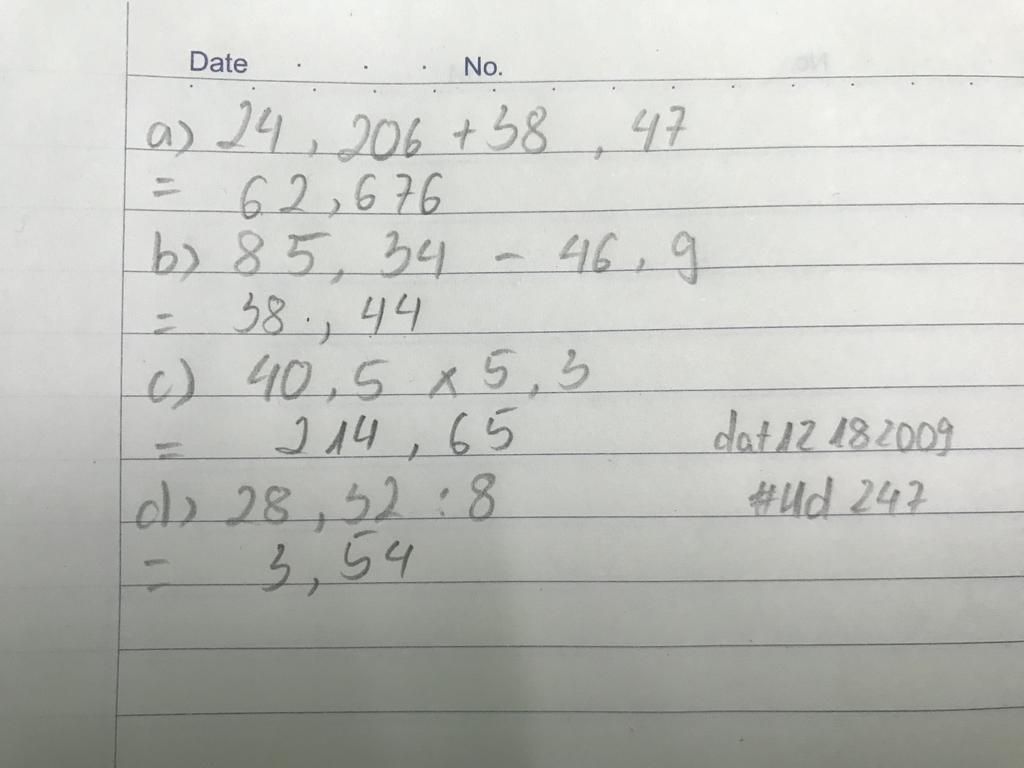 Date . . . No.
a) 24,206 + 38,47
= 62,676
b) 85,34 - 46,9
= 38,44
c) 40,5 x 5,3
= 214,65
dat12 182009
d) 28,32 : 8
#Ud 247
= 3,54